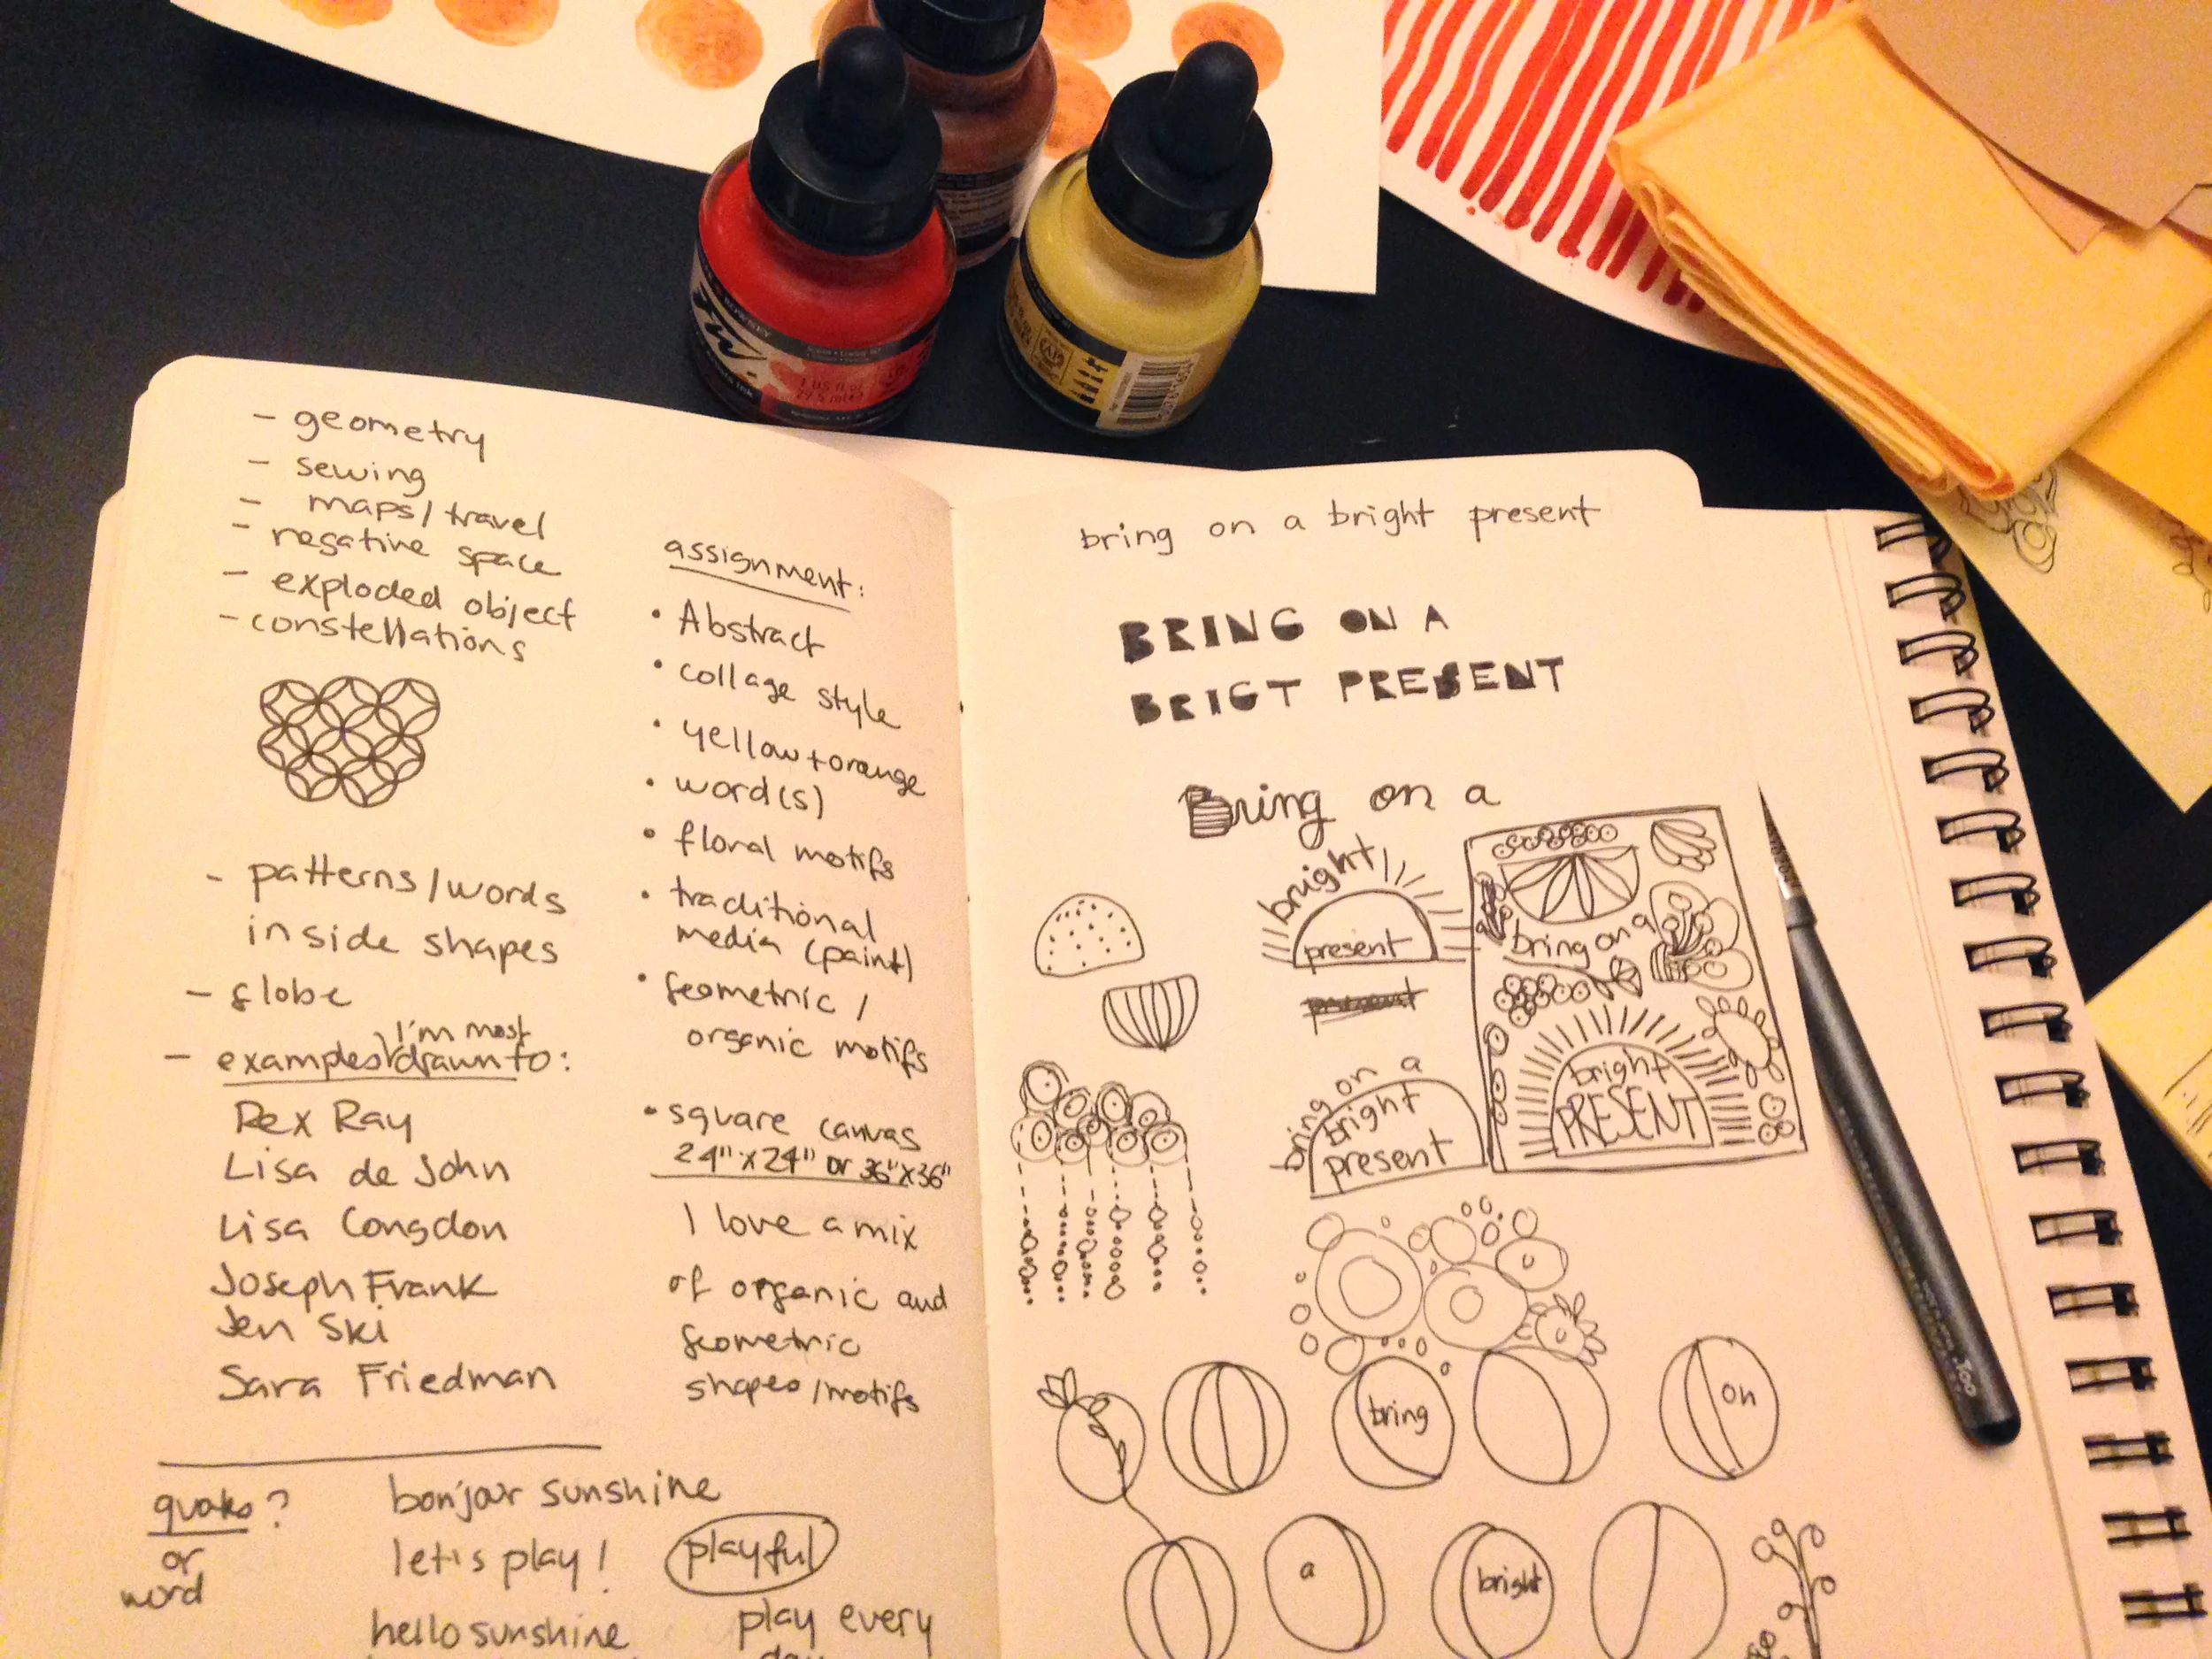 - geometry
- sewing
- maps/travel
- negative space
- exploded object
- constellations
- patterns/words
inside shapes
- globe
I'm most
- examples drawn to:
Rex Ray
Lisa de John
Lisa Congdon
Joseph Frank
Jen Ski
Sara Friedman
assignment:
• Abstract
• collage style
• yellow + orange
• word(s)
• floral motifs
• traditional
media (paint)
• geometric /
organic motifs
• square canvas
24" x 24" or 36" x 36"
I love a mix
of organic and
geometric
shapes/motifs
quote?
or
word
bonjour sunshine
let's play!
hello sunshine
playful
play every
day
bring on a bright present
BRING ON A
BRIGT PRESENT
Bring on a
bright
present
present
bring on a
bright
present
bring on a
bright
PRESENT
bring
on
a
bright
ROWNEY
1 US fl oz
29.5 ml